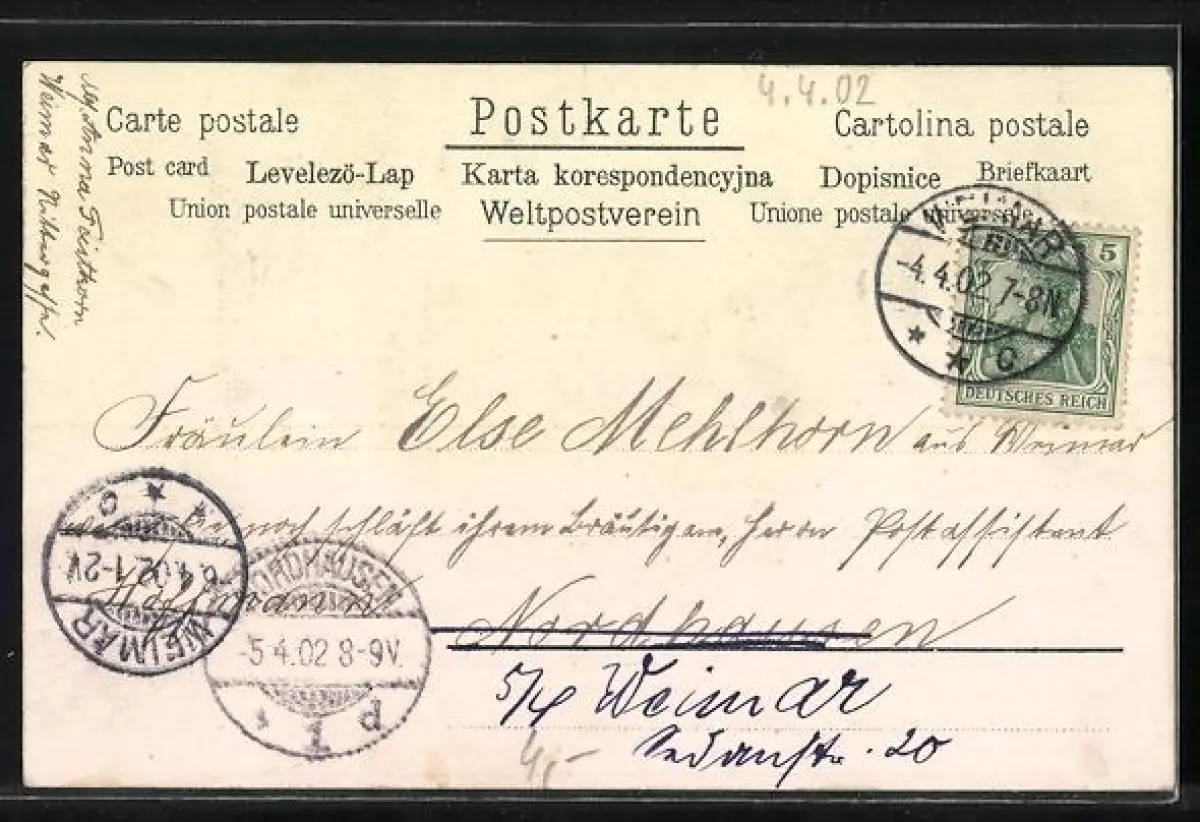 4.4.02
Carte postale
Postkarte
Cartolina postale
Post card
Levelezö-Lap
Karta korespondencyjna
Dopisnice
Briefkaart
Union postale universelle
Weltpostverein
Unione postale universelle
Anna
Weimar
WEIMAR
-4.4.02 7-8N
* * C
5
DEUTSCHES REICH
Fräulein Else Mehlhorn aus Weimar
noch schläft ihrem Bräutigam, Herrn Postassistent
Nordhausen
WEIMAR
-6.4.02 1-2V.
* * C
NORDHAUSEN
-5.4.02 8-9V.
* 1 p
5/4 Weimar
Sedanstr. 20
4,-